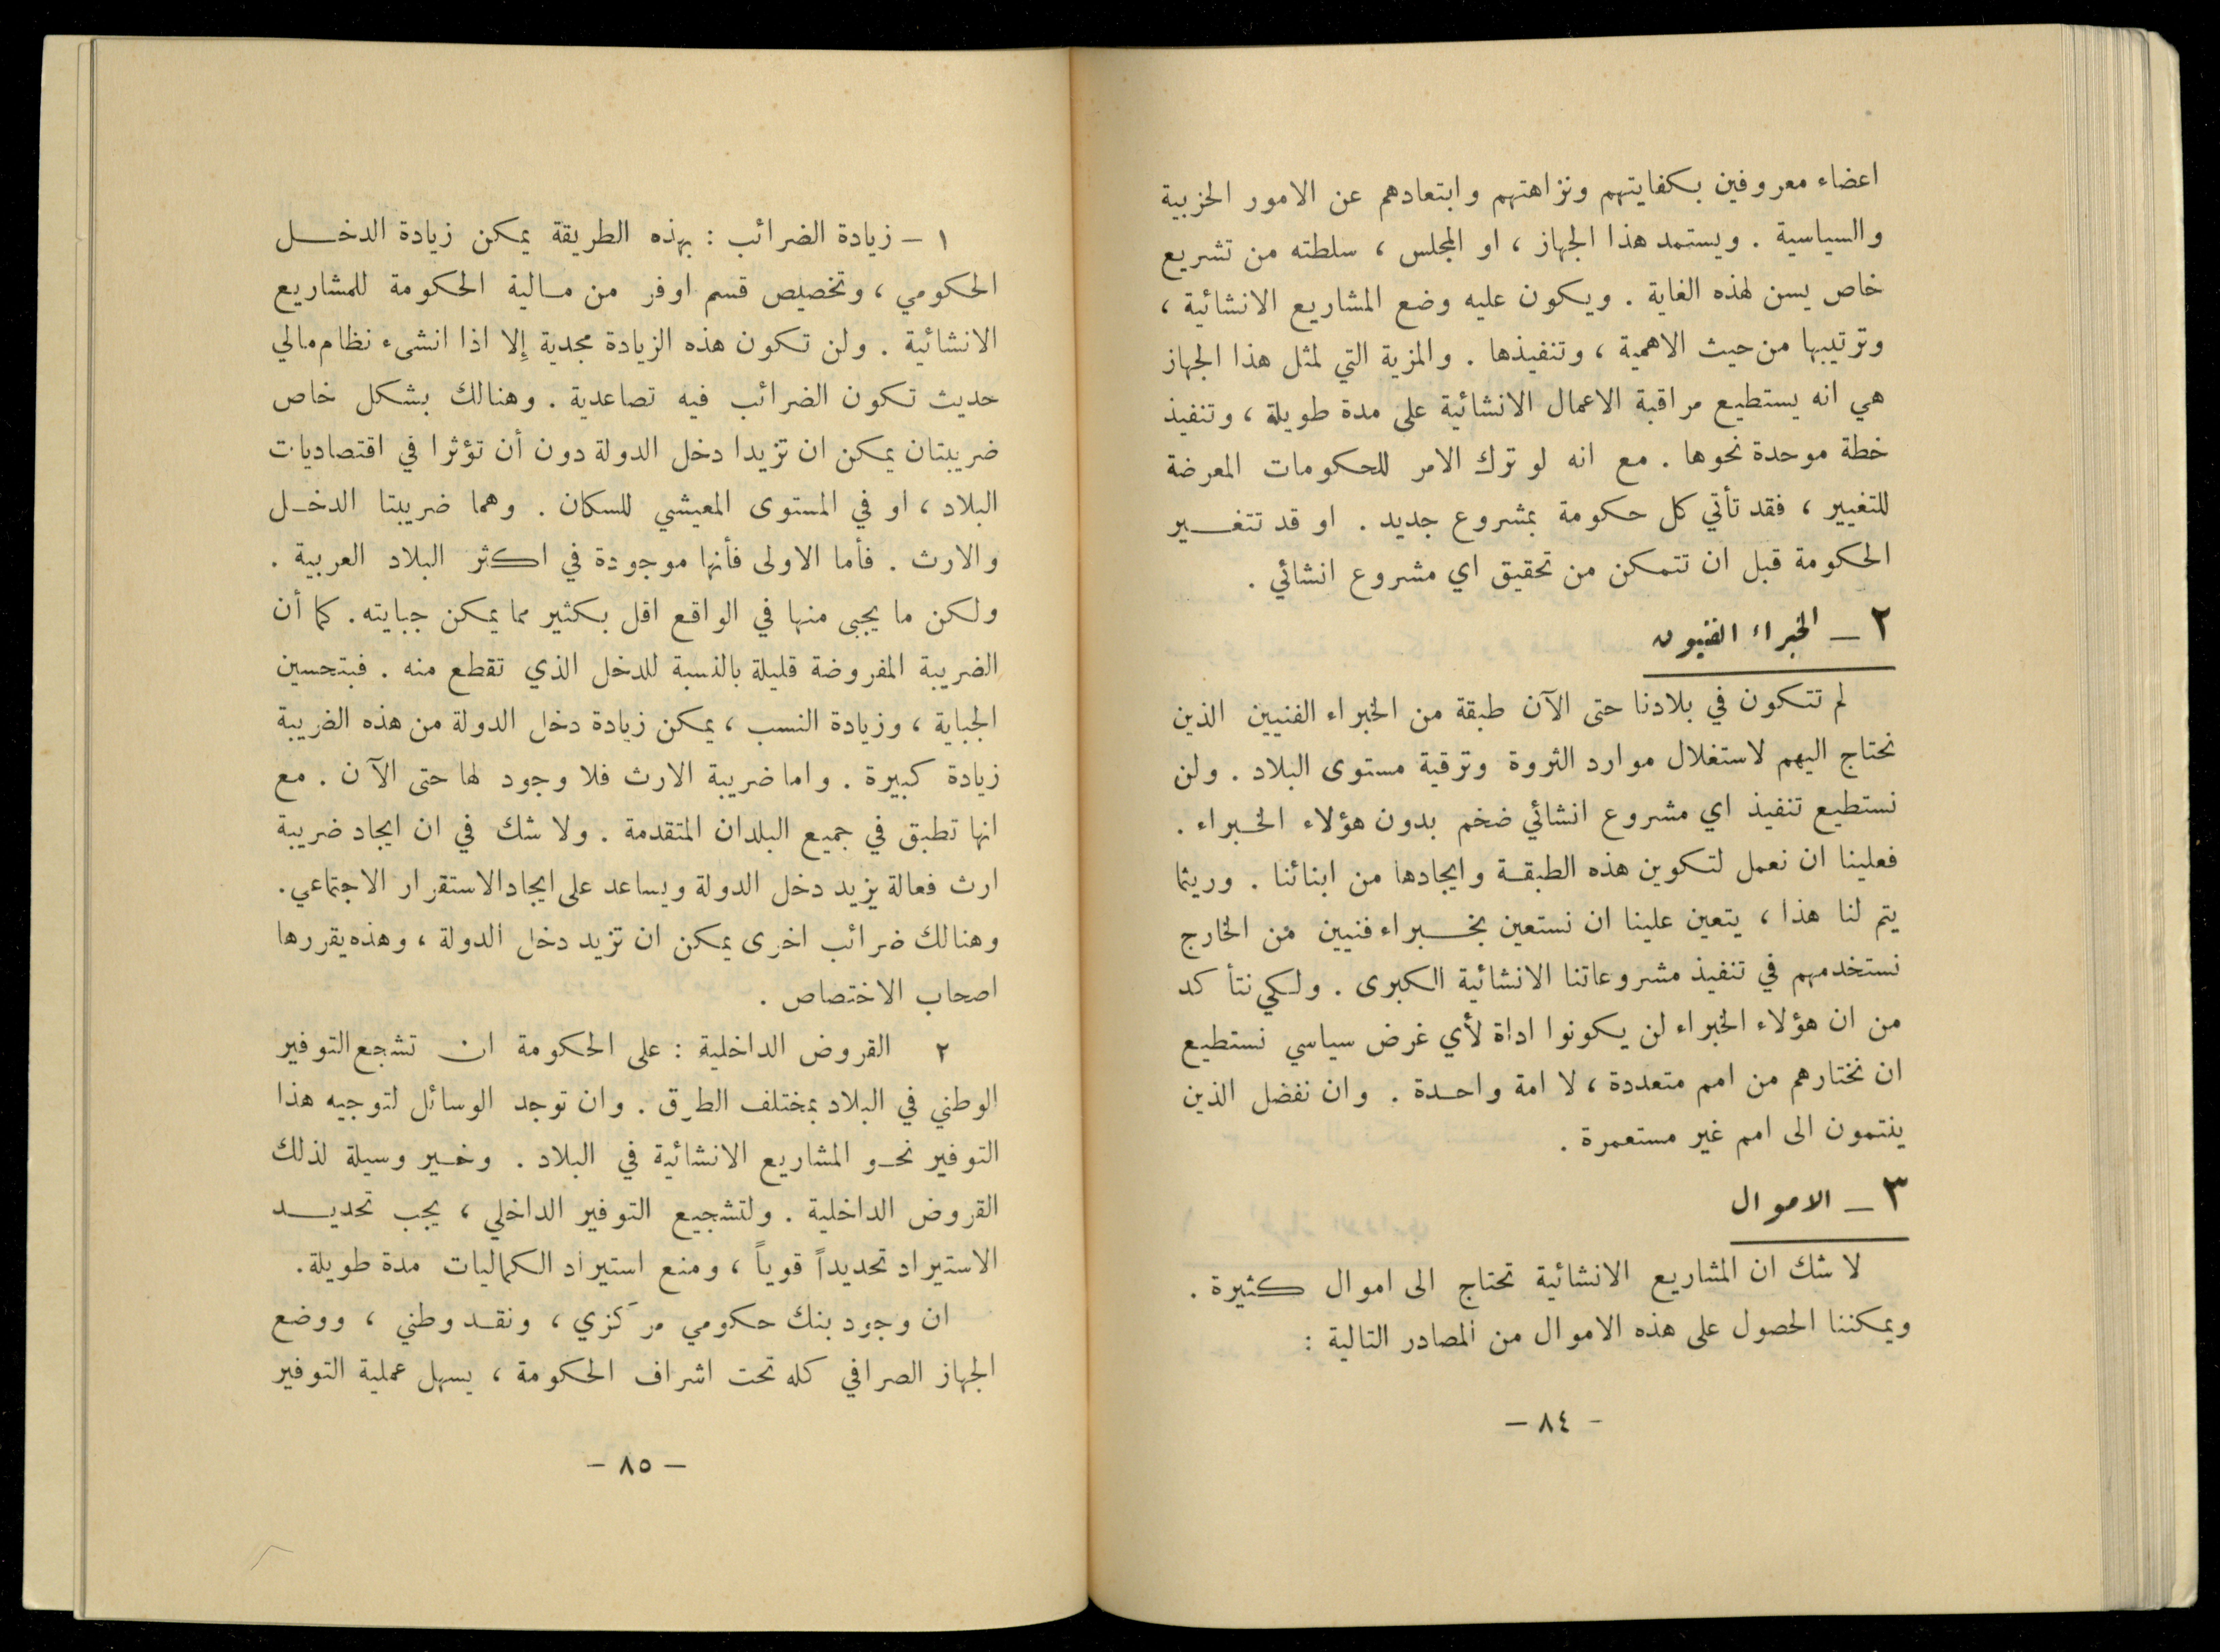 اعضاء معروفين بكفايتهم ونزاهتهم وابتعادهم عن الامور الحزبية
والسياسية . ويستمد هذا الجهاز ، او المجلس ، سلطته من تشريع
خاص يسن لهذه الغاية . ويكون عليه وضع المشاريع الانشائية ،
وترتيبها من حيث الاهمية ، وتنفيذها . والمزية التي لمثل هذا الجهاز
هي انه يستطيع مراقبة الاعمال الانشائية على مدة طويلة ، وتنفيذ
خطة موحدة نحوها . مع انه لو ترك الامر للحكومات المعرضة
للتغيير ، فقد تأتي كل حكومة بمشروع جديد . او قد تتغير
الحكومة قبل ان تتمكن من تحقيق اي مشروع انشائي .
٢ – الخبراء الفنيون
لم تتكون في بلادنا حتى الآن طبقة من الخبراء الفنيين الذين
نحتاج اليهم لاستغلال موارد الثروة وترقية مستوى البلاد . ولن
نستطيع تنفيذ اي مشروع انشائي ضخم بدون هؤلاء الخبراء .
فعلينا ان نعمل لتكوين هذه الطبقة وايجادها من ابنائنا . وريثما
يتم لنا هذا ، يتعين علينا ان نستعين بخبراء فنيين من الخارج
نستخدمهم في تنفيذ مشروعاتنا الانشائية الكبرى . ولكي نتأكد
من ان هؤلاء الخبراء لن يكونوا اداة لأي غرض سياسي نستطيع
ان نختارهم من امم متعددة ، لا امة واحدة . وان نفضل الذين
ينتمون الى امم غير مستعمرة .
٣ – الاموال
لا شك ان المشاريع الانشائية تحتاج الى اموال كثيرة .
ويمكننا الحصول على هذه الاموال من المصادر التالية :
- ٨٤ –
١ – زيادة الضرائب : بهذه الطريقة يمكن زيادة الدخل
الحكومي ، وتخصيص قسم اوفر من مالية الحكومة للمشاريع
الانشائية . ولن تكون هذه الزيادة مجدية إلا اذا انشىء نظام مالي
حديث تكون الضرائب فيه تصاعدية . وهنالك بشكل خاص
ضريبتان يمكن ان تزيدا دخل الدولة دون أن تؤثرا في اقتصاديات
البلاد ، او في المستوى المعيشي للسكان . وهما ضريبتا الدخل
والارث . فأما الاولى فأنها موجودة في اكثر البلاد العربية .
ولكن ما يجبى منها في الواقع اقل بكثير مما يمكن جبايته . كما أن
الضريبة المفروضة قليلة بالنسبة للدخل الذي تقطع منه . فبتحسين
الجباية ، وزيادة النسب ، يمكن زيادة دخل الدولة من هذه الضريبة
زيادة كبيرة . واما ضريبة الارث فلا وجود لها حتى الآن . مع
انها تطبق في جميع البلدان المتقدمة . ولا شك في ان ايجاد ضريبة
ارث فعالة يزيد دخل الدولة ويساعد على ايجاد الاستقرار الاجتماعي .
وهنالك ضرائب اخرى يمكن ان تزيد دخل الدولة ، وهذه يقررها
اصحاب الاختصاص .
٢ القروض الداخلية : على الحكومة ان تشجع التوفير
الوطني في البلاد بمختلف الطرق . وان توجد الوسائل لتوجيه هذا
التوفير نحو المشاريع الانشائية في البلاد . وخير وسيلة لذلك
القروض الداخلية . ولتشجيع التوفير الداخلي ، يجب تحديد
الاستيراد تحديداً قوياً ، ومنع استيراد الكماليات مدة طويلة .
ان وجود بنك حكومي مركزي ، ونقد وطني ، ووضع
الجهاز الصرافي كله تحت اشراف الحكومة ، يسهل عملية التوفير
– ٨٥ –